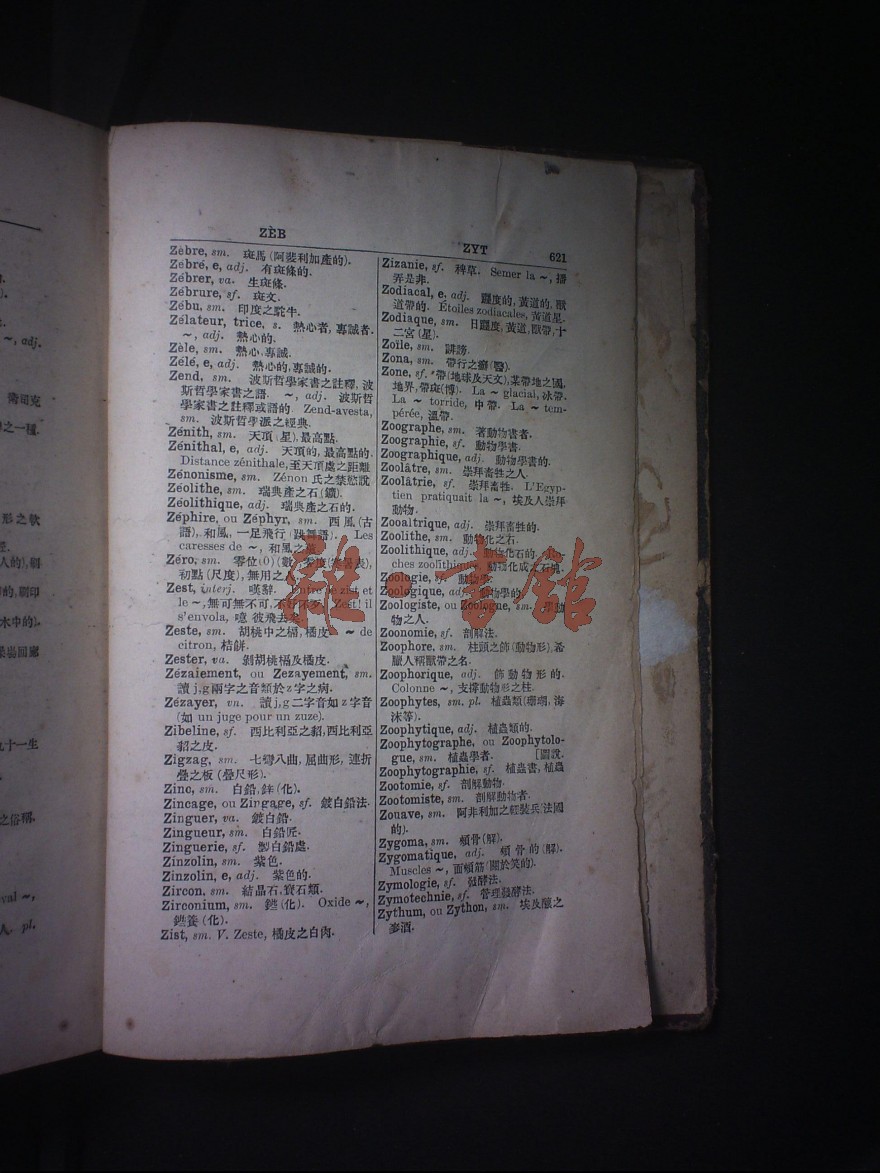 ZÈB
ZYT
621
Zèbre, sm. 斑馬(阿斐利加產的).
Zébré, e, adj. 有斑條的.
Zébrer, va. 生斑條.
Zébrure, sf. 斑文.
Zébu, sm. 印度之駝牛.
Zélateur, trice, s. 熱心者, 專誠者.
~, adj. 熱心的.
Zèle, sm. 熱心, 專誠.
Zélé, e, adj. 熱心的, 專誠的.
Zend, sm. 波斯哲學家書之註釋, 波
斯哲學家書之語. ~, adj. 波斯哲
學家書之註釋或語的 Zend-avesta,
sm. 波斯哲學派之經典.
Zénith, sm. 天頂(星), 最高點.
Zénithal, e, adj. 天頂的, 最高點的.
Distance zénithale, 至天頂處之距離
Zénonisme, sm. Zénon 氏之禁慾說
Zéolithe, sm. 瑞典產之石(鑛).
Zéolithique, adj. 瑞典產之石的.
Zéphire, ou Zéphyr, sm. 西風(古
語), 和風, 一足飛行(跳舞語). Les
caresses de ~, 和風之
Zéro, sm. 零位(0)(數), 零度(寒暑表),
初點(尺度), 無用之人
Zest, interj. 嘆辭. Entre le zist et
le ~, 無可無不可, 不好不歹. Zest! il
s'envola, 噫 彼飛去
Zeste, sm. 胡桃中之槅, 橘皮 ~ de
citron, 桔餅.
Zester, va. 剝胡桃槅及橘皮.
Zézaiement, ou Zezayement, sm.
讀 j, g 兩字之音類於 z 字之病.
Zézayer, vn. 讀 j, g 二字音如 z 字音
(如 un juge pour un zuze).
Zibeline, sf. 西比利亞之貂, 西比利亞
貂之皮.
Zigzag, sm. 七彎八曲, 屈曲形, 連折
疊之板(疊尺形).
Zinc, sm. 白鉛, 鋅(化).
Zincage, ou Zingage, sf. 鍍白鉛法.
Zinguer, va. 鍍白鉛.
Zingueur, sm. 白鉛匠.
Zinguerie, sf. 製白鉛處.
Zinzolin, sm. 紫色.
Zinzolin, e, adj. 紫色的.
Zircon, sm. 結晶石, 寶石類.
Zirconium, sm. 鋯(化). Oxide ~,
鋯養(化).
Zist, sm. V. Zeste, 橘皮之白肉.
Zizanie, sf. 稗草. Semer la ~, 播
弄是非.
Zodiacal, e, adj. 躔度的, 黃道的, 獸
道帶的. Étoiles zodiacales, 黃道星.
Zodiaque, sm. 日躔度, 黃道, 獸帶, 十
二宮(星).
Zoïle, sm. 誹謗.
Zona, sm. 帶行之癬(醫).
Zone, sf. 帶(地球及天文), 某帶地之國,
地界, 帶斑(博). La ~ glacial, 冰帶.
La ~ torride, 中帶. La ~ tem-
pérée, 溫帶.
Zoographe, sm. 著動物書者.
Zoographie, sf. 動物學書.
Zoographique, adj. 動物學書的.
Zoolâtre, sm. 崇拜畜牲之人.
Zoolâtrie, sf. 崇拜畜牲. L'Egyp-
tien pratiquait la ~, 埃及人崇拜
動物.
Zooaltrique, adj. 崇拜畜牲的.
Zoolithe, sm. 動物化之石.
Zoolithique, adj. 動物化石的.
ches zoolithiques, 動物化成之石塊.
Zoologie, sf. 動物學.
Zoologique, adj. 動物學的.
Zoologiste, ou Zoologue, sm. 學動
物之人.
Zoonomie, sf. 剖解法.
Zoophore, sm. 柱頭之飾(動物形), 希
臘人稱獸帶之名.
Zoophorique, adj. 飾動物形的.
Colonne ~, 支撐動物形之柱.
Zoophytes, sm. pl. 植蟲類(珊瑚, 海
沫等).
Zoophytique, adj. 植蟲類的.
Zoophytographe, ou Zoophytolo-
gue, sm. 植蟲學者. [圖說.
Zoophytographie, sf. 植蟲書, 植蟲
Zootomie, sf. 剖解動物.
Zootomiste, sm. 剖解動物者.
Zouave, sm. 阿非利加之輕裝兵(法國
的).
Zygoma, sm. 頰骨(解).
Zygomatique, adj. 頰骨的(解).
Muscles ~, 面頰筋(關於笑的).
Zymologie, sf. 發酵法.
Zymotechnie, sf. 管理發酵法.
Zythum, ou Zython, sm. 埃及釀之
麥酒.
書館